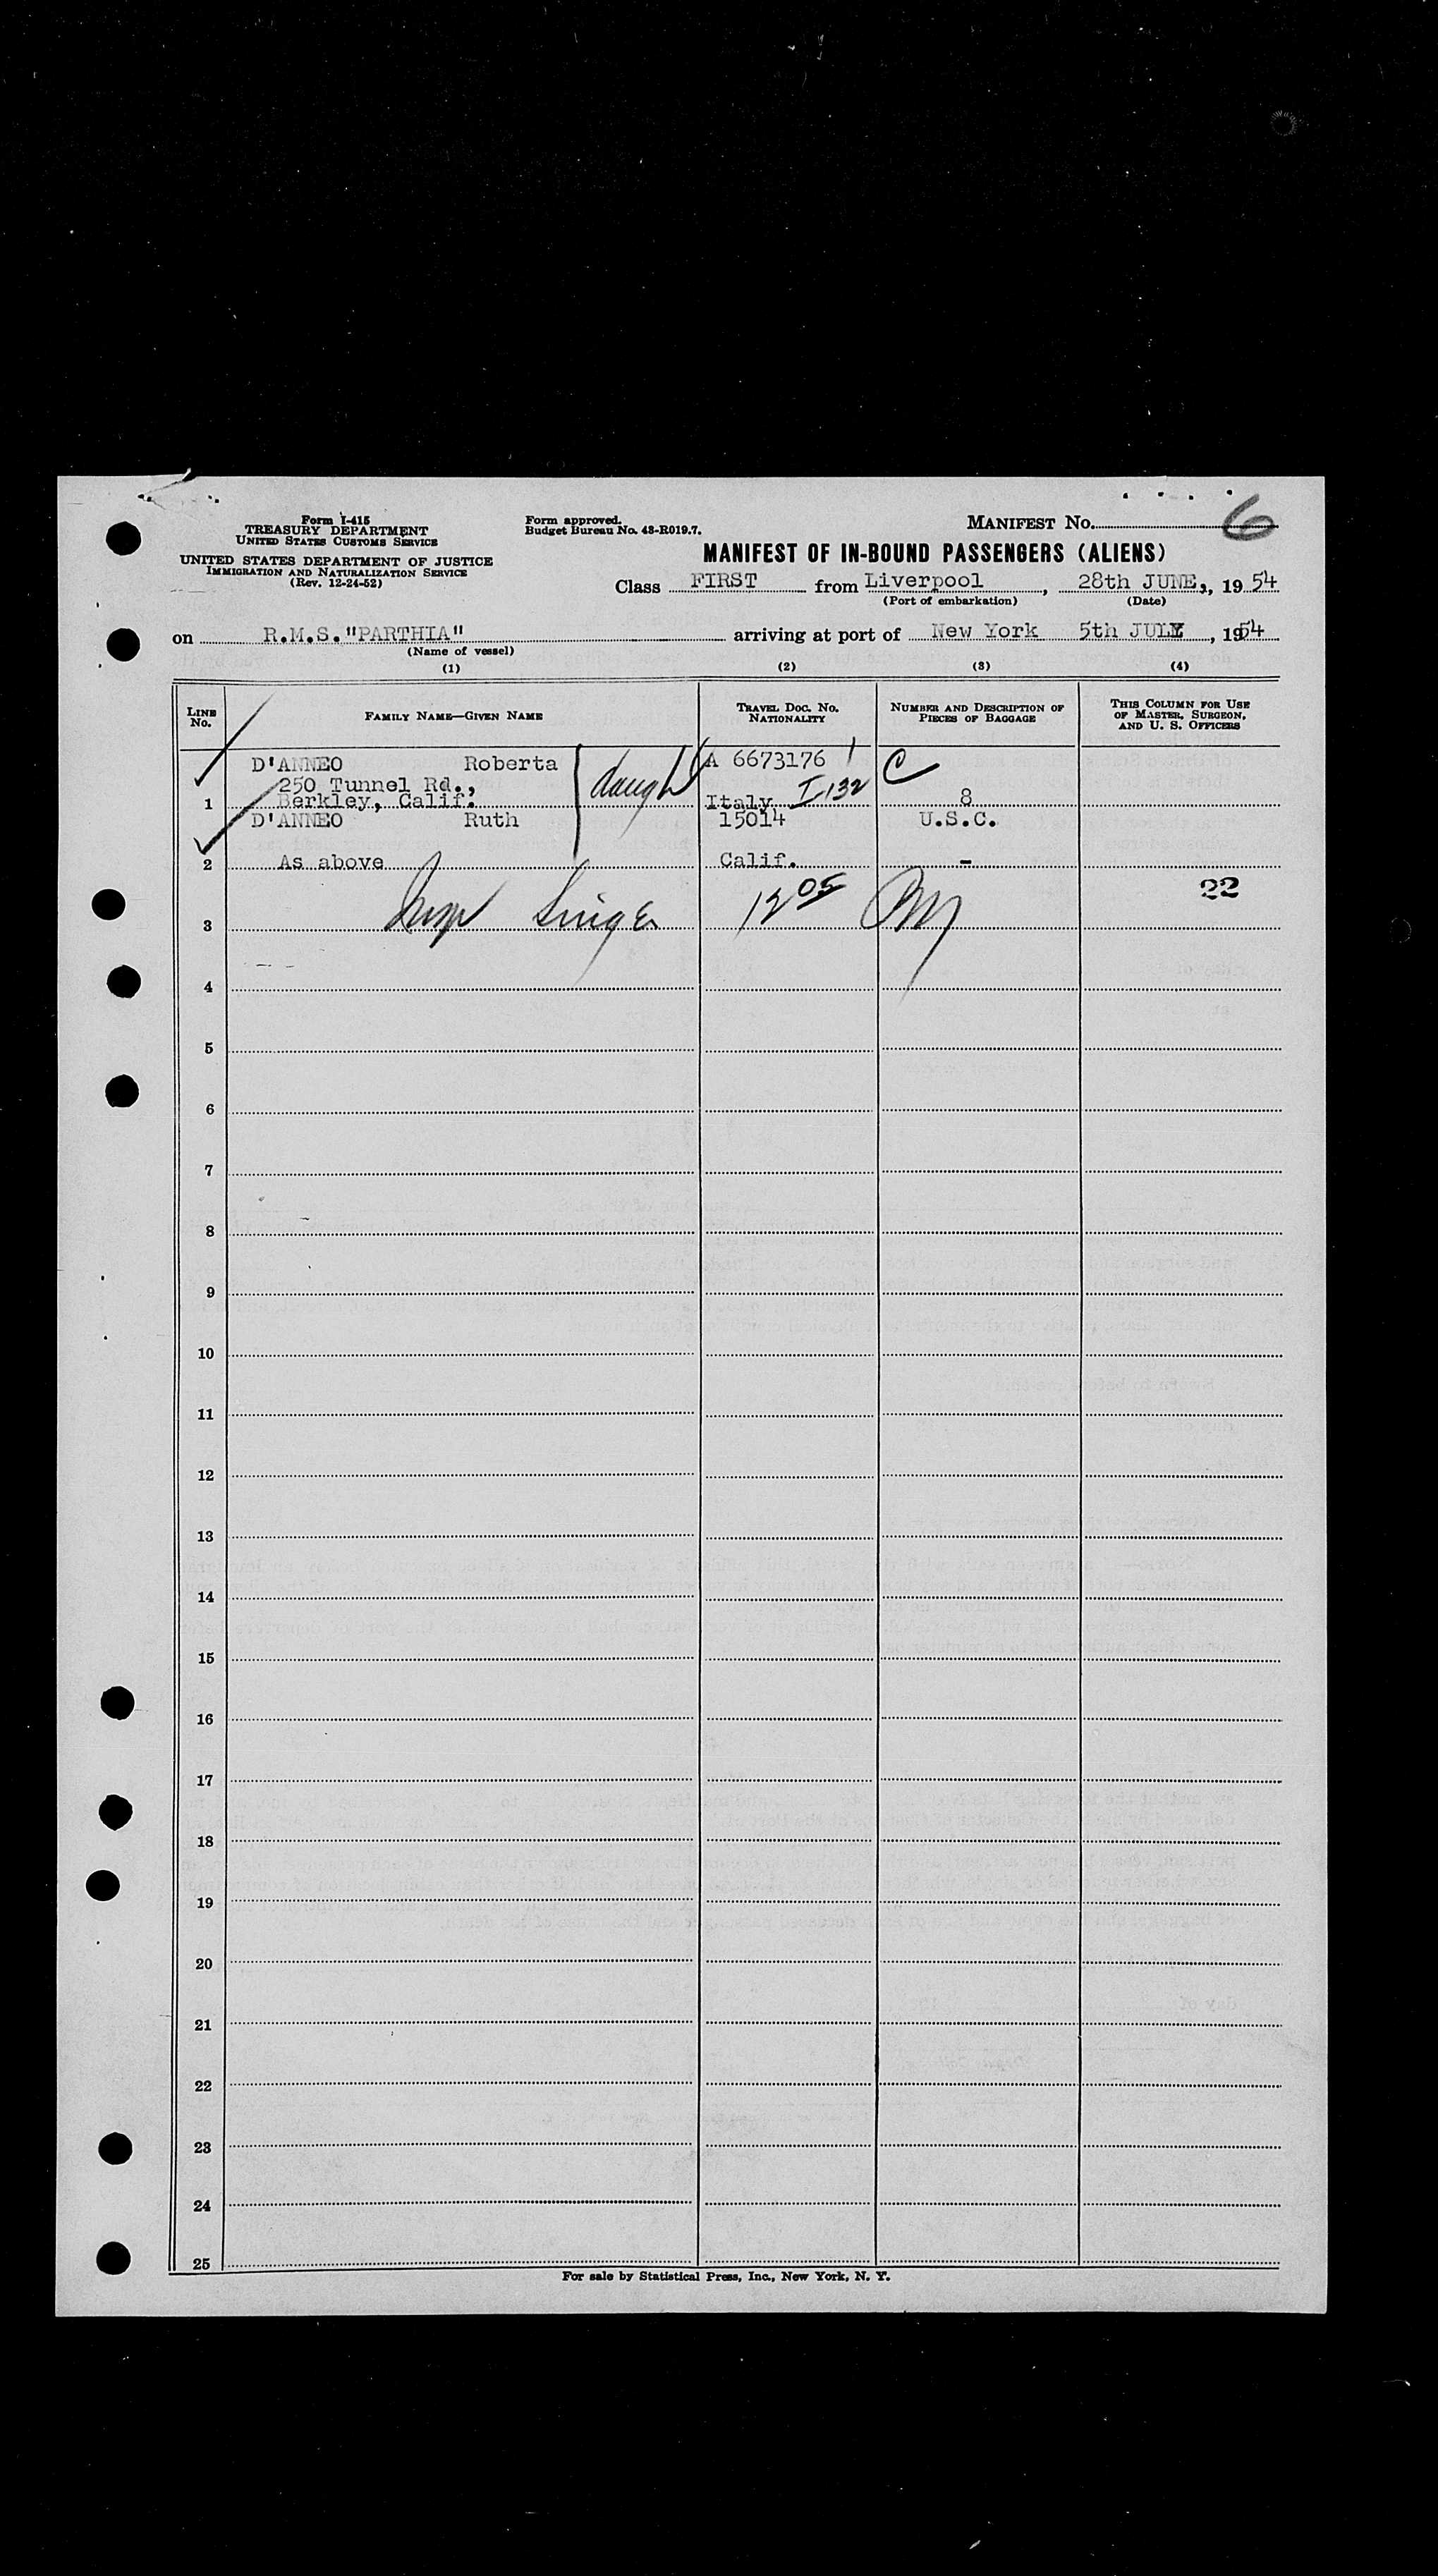 Form I-415
TREASURY DEPARTMENT
UNITED STATES CUSTOMS SERVICE
UNITED STATES DEPARTMENT OF JUSTICE
IMMIGRATION AND NATURALIZATION SERVICE
(Rev. 12-24-52)
Form approved.
Budget Bureau No. 43-R019.7.
MANIFEST NO. 6
MANIFEST OF IN-BOUND PASSENGERS (ALIENS)
Class FIRST from Liverpool, 28th JUNE, 1954
(Port of embarkation) (Date)
on R.M.S."PARTHIA" arriving at port of New York 5th JULY, 1954
(Name of vessel)
(1) (2) (3) (4)
LINE No. FAMILY NAME—GIVEN NAME TRAVEL DOC. NO. NATIONALITY NUMBER AND DESCRIPTION OF PIECES OF BAGGAGE THIS COLUMN FOR USE OF MASTER, SURGEON, AND U. S. OFFICERS
D'ANNEO Roberta daught A 6673176 C
250 Tunnel Rd.,
1 Berkley, Calif. Italy I132 8
D'ANNEO Ruth 15014 U.S.C.
2 As above Calif. -
22
3 Insp Singer 12 05
4
5
6
7
8
9
10
11
12
13
14
15
16
17
18
19
20
21
22
23
24
25
For sale by Statistical Press, Inc., New York, N. Y.